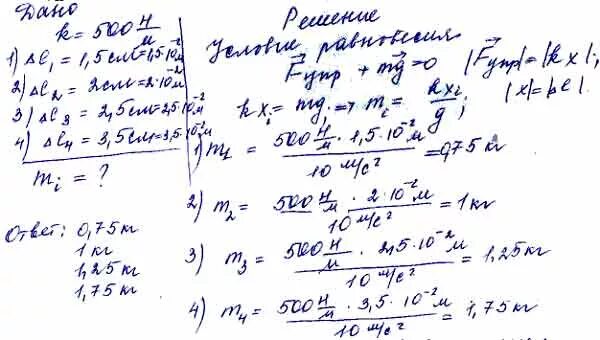 Дано
k = 500 Н/м
1) Δl₁ = 1,5 см = 1,5·10⁻² м
2) Δl₂ = 2 см = 2·10⁻² м
3) Δl₃ = 2,5 см = 2,5·10⁻² м
4) Δl₄ = 3,5 см = 3,5·10⁻² м
mᵢ = ?
Ответ: 0,75 кг
1 кг
1,25 кг
1,75 кг
Решение
Условие равновесия
F⃗упр + mg⃗ = 0 |F⃗упр| = |kx|;
kxᵢ = mgᵢ ⇒ mᵢ = kxᵢ/g; |x| = |Δl|.
1) m₁ = 500 Н/м · 1,5·10⁻² м / 10 м/с² = 0,75 кг
2) m₂ = 500 Н/м · 2·10⁻² м / 10 м/с² = 1 кг
3) m₃ = 500 Н/м · 2,5·10⁻² м / 10 м/с² = 1,25 кг
4) m₄ = 500 Н/м · 3,5·10⁻² м / 10 м/с² = 1,75 кг